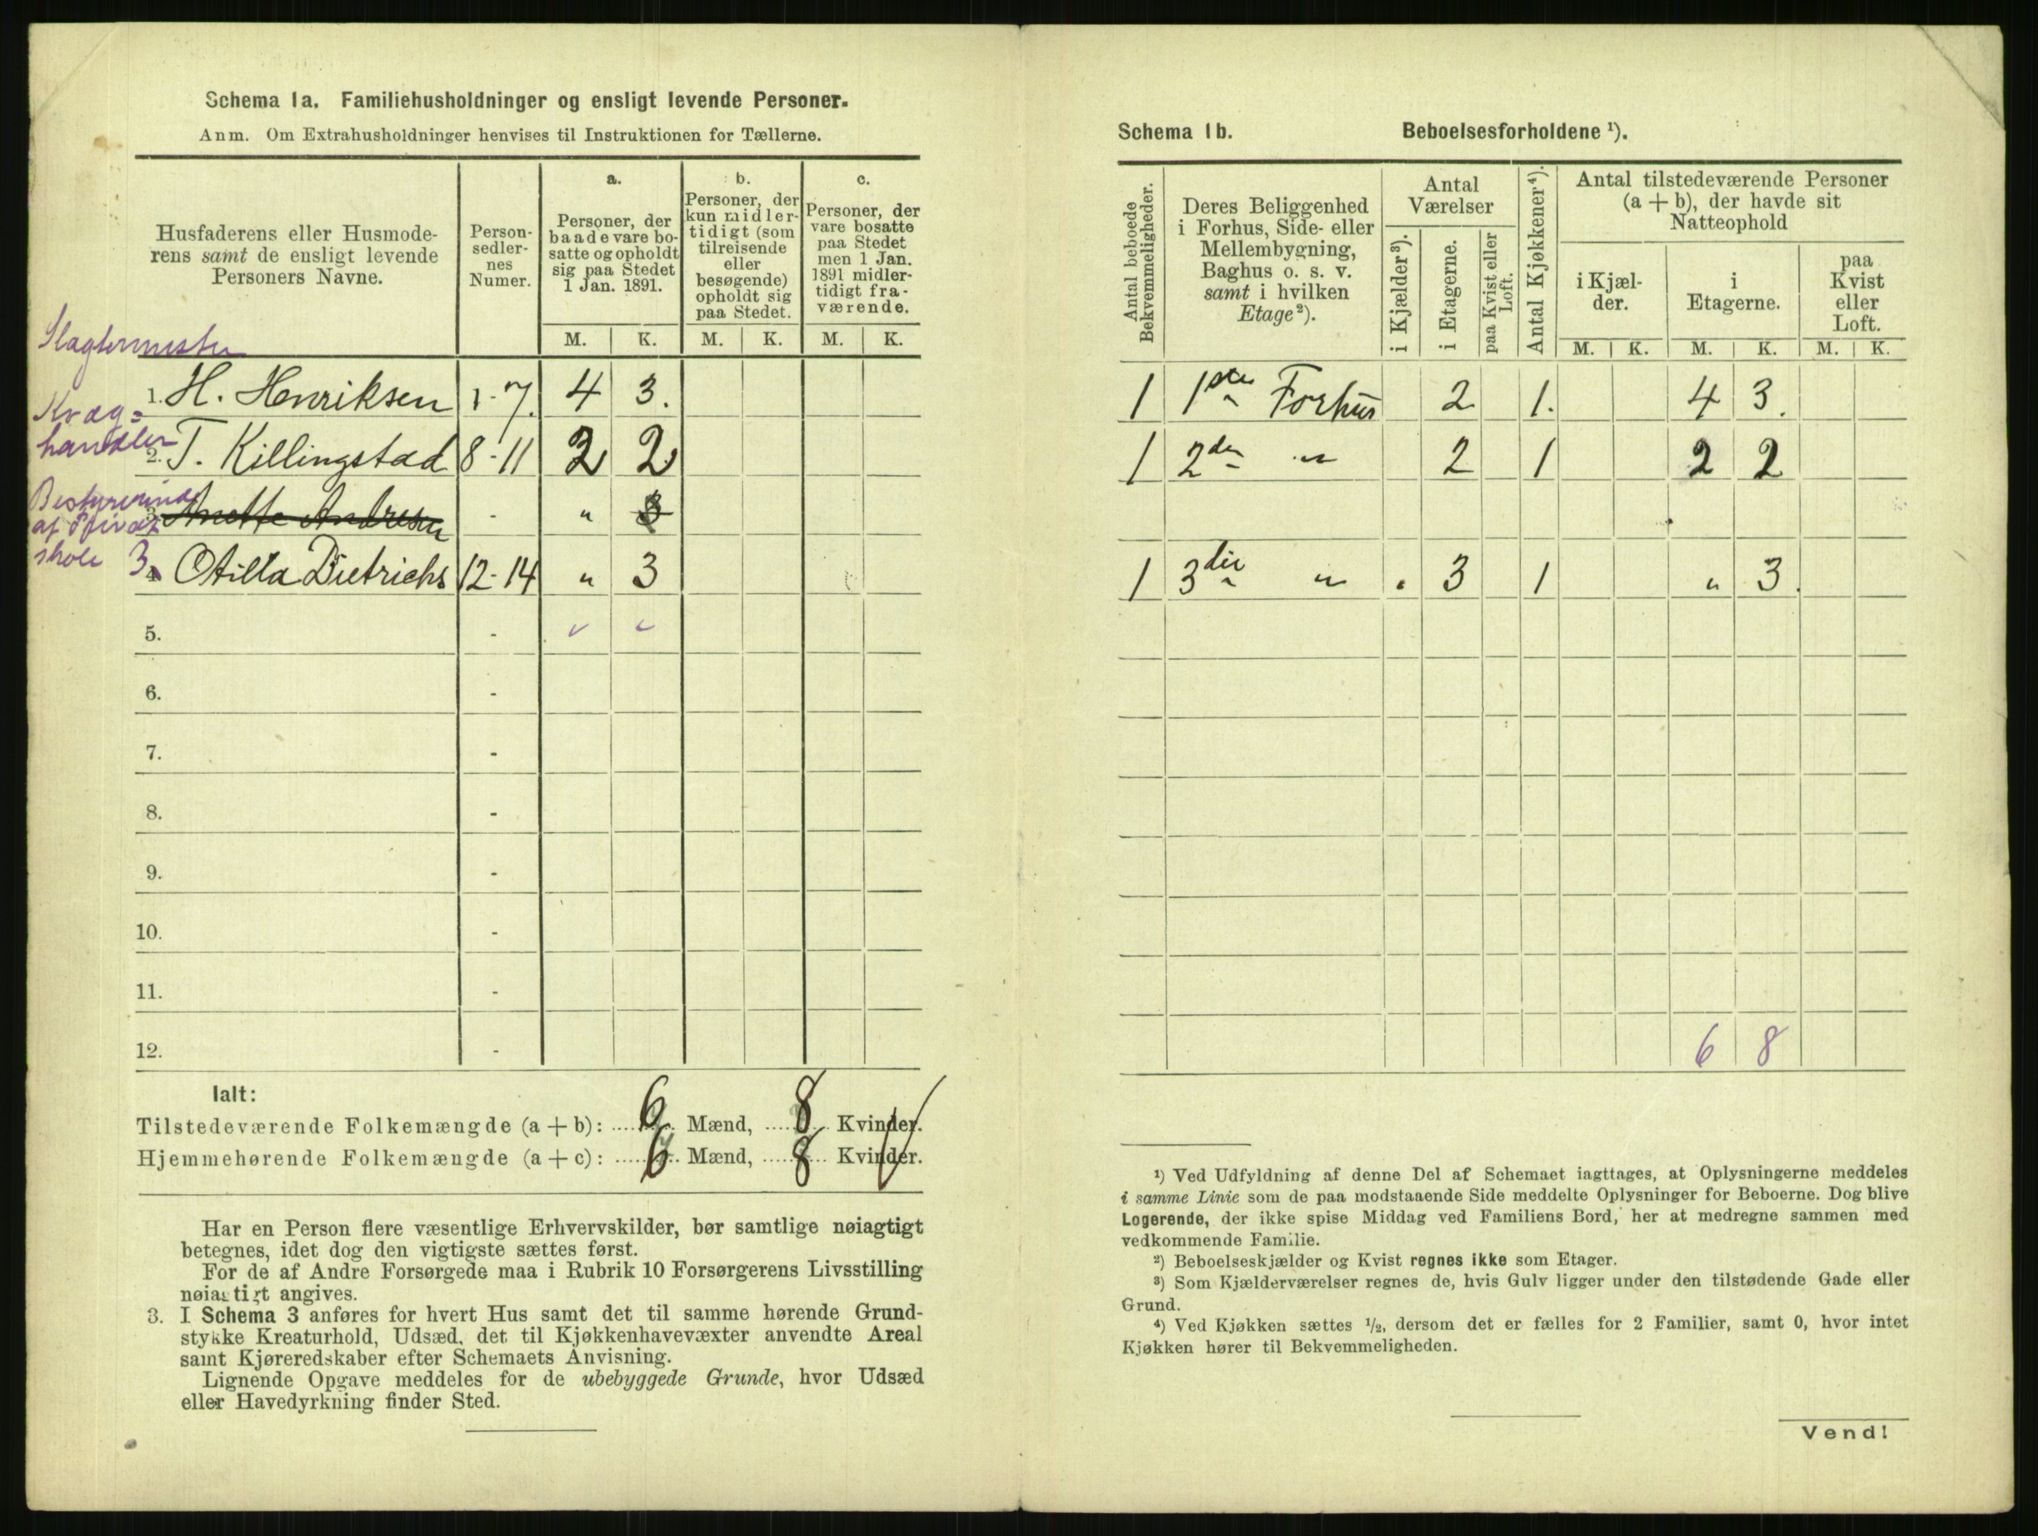 Schema 1a. Familiehusholdninger og ensligt levende Personer.
Anm. Om Extrahusholdninger henvises til Instruktionen for Tællerne.
Husfaderens eller Husmode-
rens samt de ensligt levende
Personers Navne.
Person-
sedler-
nes
Numer.
a.
Personer, der
baade vare bo-
satte og opholdt
sig paa Stedet
1 Jan. 1891.
b.
Personer, der
kun midler-
tidigt (som
tilreisende
eller
besøgende)
opholdt sig
paa Stedet.
c.
Personer, der
vare bosatte
paa Stedet
men 1 Jan.
1891 midler-
tidigt fra-
værende.
M. K. M. K. M. K.
Slagtermester
1. H. Henriksen 1-7. 4 3.
Kvæg-
handler
2. T. Killingstad 8-11 2 2
Bestyrerinde
af Privat
skole
3. Anette Andresen - " 3
3. 4. Otilla Dietrichs 12-14 " 3
5. -
6. -
7. -
8. -
9. -
10. -
11. -
12. -
Ialt:
Tilstedeværende Folkemængde (a + b): 6 Mænd, 8 Kvinder.
Hjemmehørende Folkemængde (a + c): 6 Mænd, 8 Kvinder.
Har en Person flere væsentlige Erhvervskilder, bør samtlige nøiagtigt
betegnes, idet dog den vigtigste sættes først.
For de af Andre Forsørgede maa i Rubrik 10 Forsørgerens Livsstilling
nøiagtigt angives.
3. I Schema 3 anføres for hvert Hus samt det til samme hørende Grund-
stykke Kreaturhold, Udsæd, det til Kjøkkenhavevæxter anvendte Areal
samt Kjøreredskaber efter Schemaets Anvisning.
Lignende Opgave meddeles for de ubebyggede Grunde, hvor Udsæd
eller Havedyrkning finder Sted.
Schema 1b. Beboelsesforholdene ¹).
Antal beboede
Bekvemmeligheder.
Deres Beliggenhed
i Forhus, Side- eller
Mellembygning,
Baghus o. s. v.
samt i hvilken
Etage²).
Antal
Værelser
i Kjælder³).
i Etagerne.
paa Kvist eller
Loft.
Antal Kjøkkener⁴).
Antal tilstedeværende Personer
(a + b), der havde sit
Natteophold
i Kjæl-
der.
i
Etagerne.
paa
Kvist
eller
Loft.
M. K. M. K. M. K.
1 1ste Forhus 2 1. 4 3.
1 2den " 2 1 2 2
1 3die " 3 1 " 3.
6 8
¹) Ved Udfyldning af denne Del af Schemaet iagttages, at Oplysningerne meddeles
i samme Linie som de paa modstaaende Side meddelte Oplysninger for Beboerne. Dog blive
Logerende, der ikke spise Middag ved Familiens Bord, her at medregne sammen med
vedkommende Familie.
²) Beboelseskjælder og Kvist regnes ikke som Etager.
³) Som Kjælderværelser regnes de, hvis Gulv ligger under den tilstødende Gade eller
Grund.
⁴) Ved Kjøkken sættes ½, dersom det er fælles for 2 Familier, samt 0, hvor intet
Kjøkken hører til Bekvemmeligheden.
Vend!